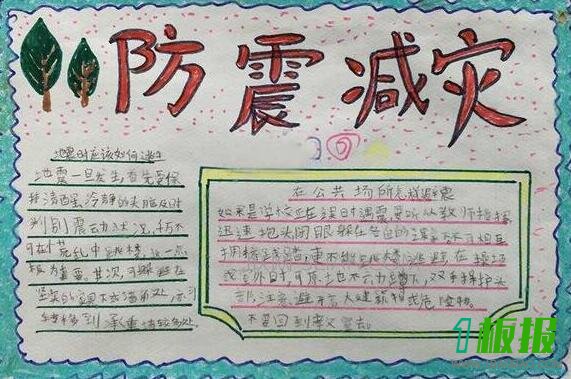 防震减灾
地震时应该如何逃生
地震一旦发生首先要保
持清醒冷静的头脑及时
判别震动状况，千万不
可在慌乱中跳楼，这一点
极为重要。其次，可躲避在
坚实的家具下或墙角处，亦可
转移到承重墙较多处
在公共场所怎样避震
如果是学校正在课时遇震要听从教师指挥
迅速抱头闭眼躲在各自的课桌下不可相互
拥挤踩踏，更不能跳楼逃避在操场
或室外时，可原地不动蹲下，双手保护头
部注意避开高大建筑物或危险物
不要回到教室去。
1板报